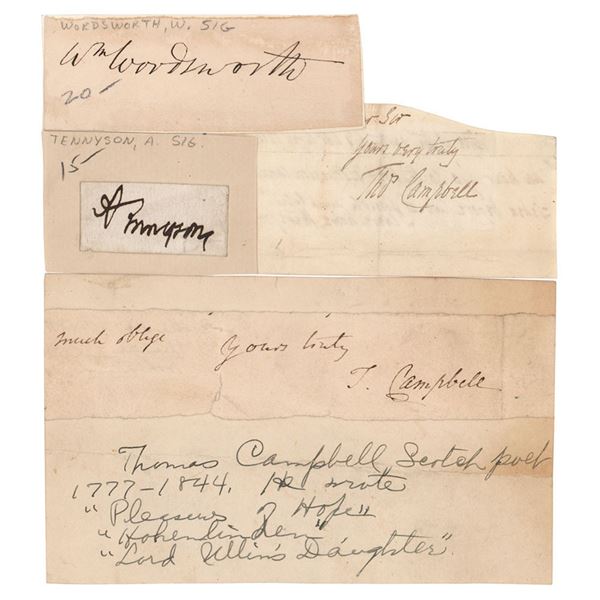 WORDSWORTH, W. SIG
Wm Wordsworth
20-
TENNYSON, A. SIG.
15-
A Tennyson
Sir
yours very truly
Thos Campbell
much oblige yours truly
T. Campbell
Thomas Campbell Scotch poet
1777-1844. He wrote
"Pleasures of Hope"
"Hohenlinden"
"Lord Ullin's Daughter".